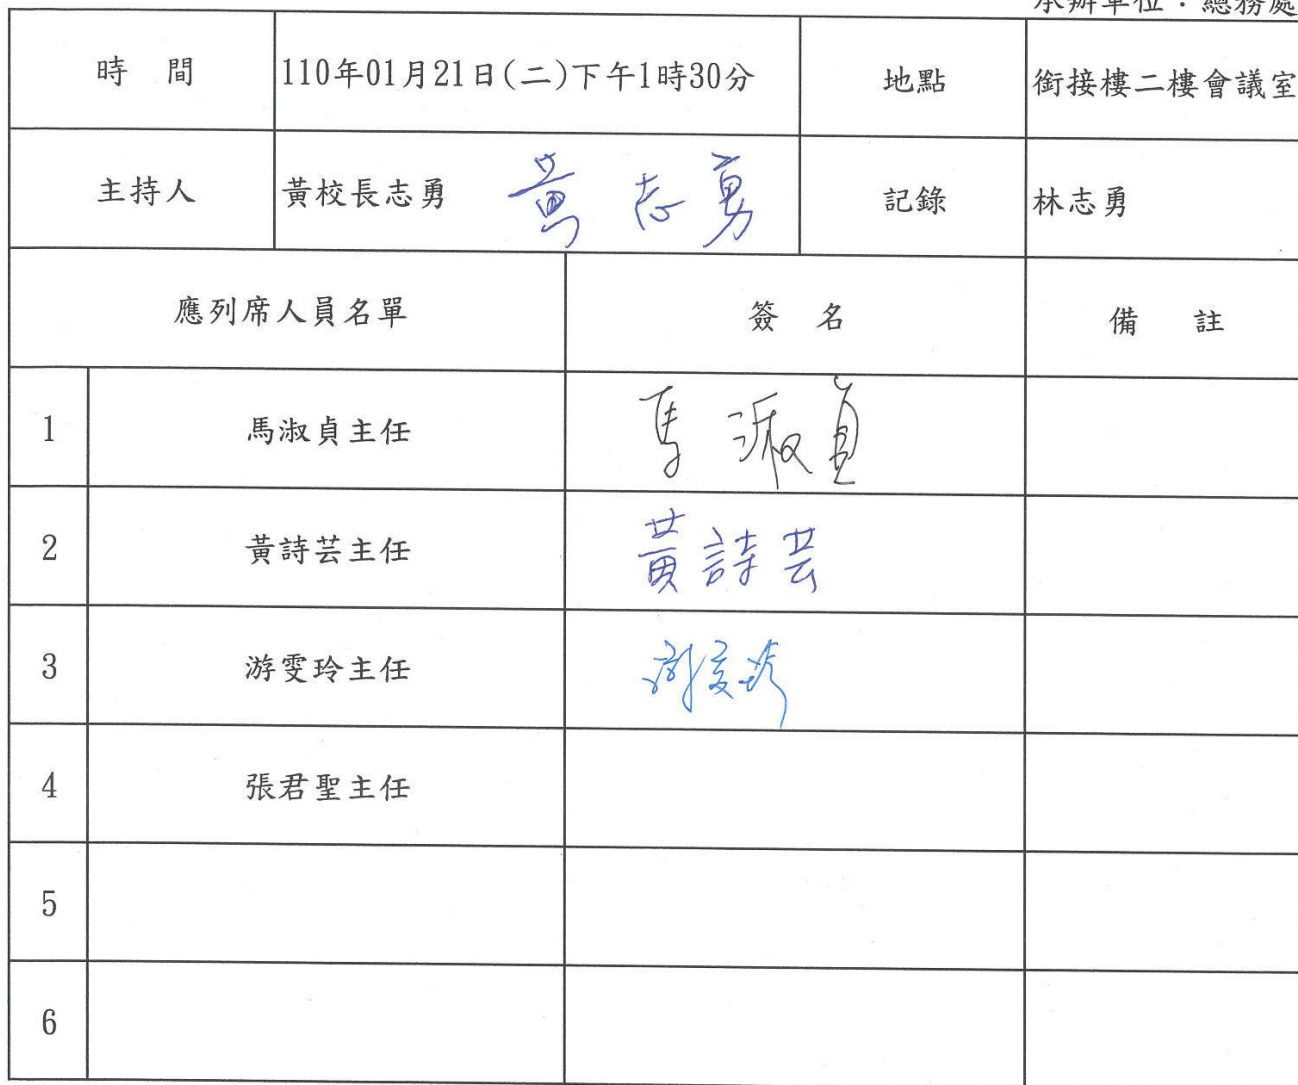 承辦單位：總務處
時 間 110年01月21日(二)下午1時30分 地點 銜接樓二樓會議室
主持人 黃校長志勇 黃志勇 記錄 林志勇
應列席人員名單 簽 名 備 註
1 馬淑貞主任 馬淑貞
2 黃詩芸主任 黃詩芸
3 游雯玲主任 游雯玲
4 張君聖主任
5
6